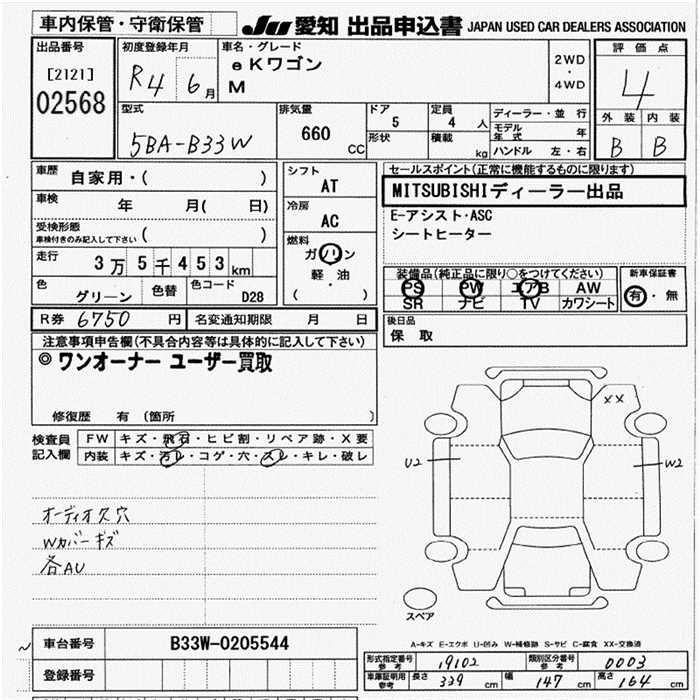 車内保管・守衛保管
JU 愛知 出品申込書 JAPAN USED CAR DEALERS ASSOCIATION
出品番号
[2121]
02568
初度登録年月
R4 6月
車名・グレード
eKワゴン
M
2WD
・
4WD
評価点
4
外装 内装
B B
型式
5BA-B33W
排気量
660 CC
ドア
5
形状
定員
4 人
積載
kg
ディーラー・並行
モデル年式 年
ハンドル 左・右
車歴
自家用・( )
車検 年 月( 日)
受検形態
車検付きのみ記入して下さい ( )
走行 3万5千453km
色 グリーン 色替 色コード D28
R券 6750 円 名変通知期限 月 日
シフト
AT
冷房
AC
燃料
ガソリン
軽・油
( )
セールスポイント(正常に機能するものに限ります)
MITSUBISHIディーラー出品
E-アシスト・ASC
シートヒーター
装備品(純正品に限り○をつけてください)
PS PW エアB AW
SR ナビ TV カワシート
新車保証書
有・無
後日品
保 取
注意事項申告欄(不具合内容等は具体的に記入して下さい)
◎ワンオーナー ユーザー買取
修復歴 有 (箇所 )
検査員記入欄
FW キズ・飛石・ヒビ割・リペア跡・X要
内装 キズ・汚レ・コゲ・穴・スレ・キレ・破レ
オーディオ欠穴
Wカバーキズ
各AU
XX
U2
W2
スペア
A-キズ E-エクボ U-凹み W-補修跡 S-サビ C-腐食 XX-交換済
車台番号 B33W-0205544
登録番号
形式指定番号 参考 19102 類別区分番号 参考 0003
車庫証明用 参考 長さ 339 cm 幅 147 cm 高さ 164 cm